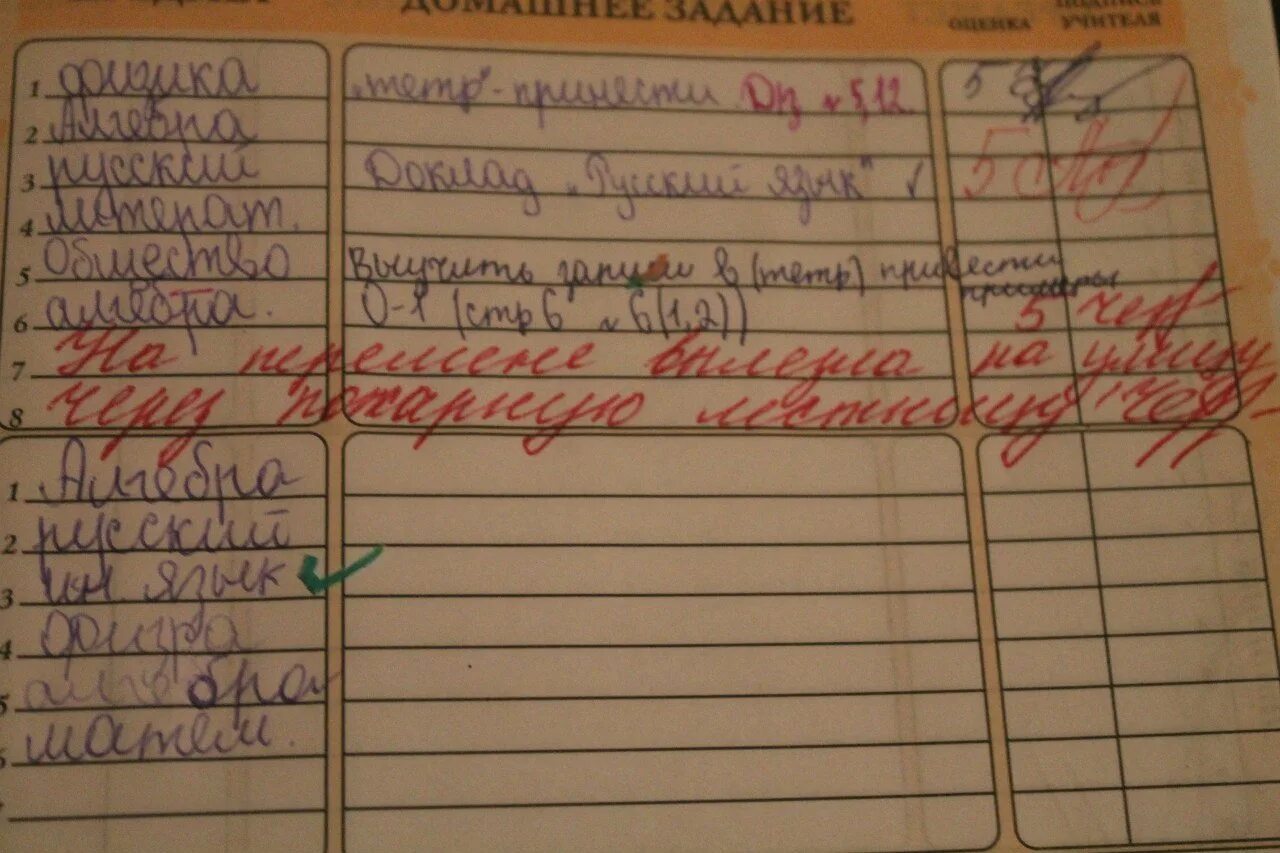 ДОМАШНЕЕ ЗАДАНИЕ
ОЦЕНКА
ПОДПИСЬ УЧИТЕЛЯ
1 физика „тетр"-принести Дз № 5,12 5
2 Алгебра
3 русский Доклад „Русский язык" ✓ 5
4 литерат.
5 Общество Выучить записи в (тетр) привести примеры
6 алгебра. О-1 (стр 6 № 6(1,2)) 5 чел
7 На перемене вылезла на улицу
8 через пожарную лестницу
1 Алгебра
2 русский
3 ин язык ✓
4 физра
5 алгебра
6 матем.
7